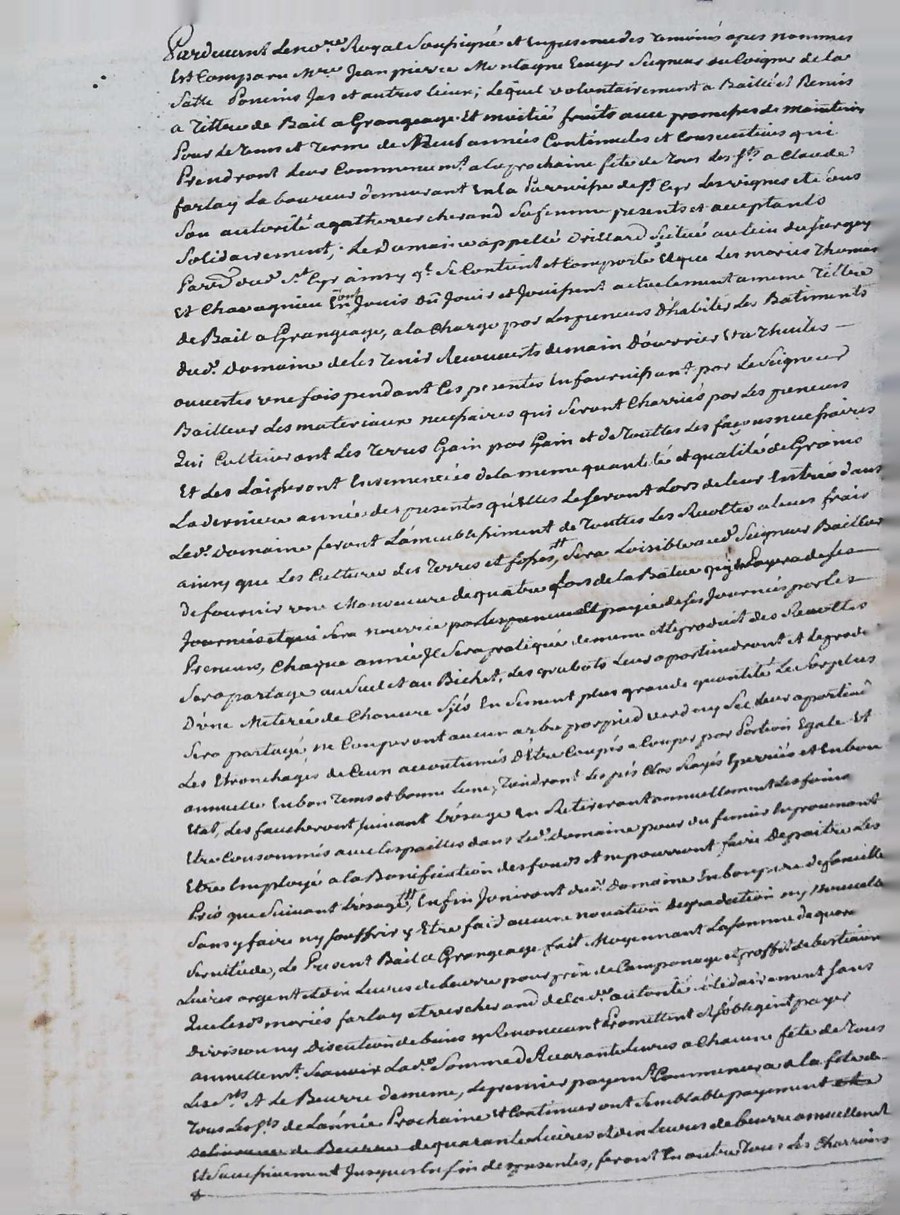 Pardevant Le no.re Royal Soussigné et En presence des temoins apres nommés
Est Comparu M.re Jean pierre Montagne Ecuyer Seigneur du Poigne de la
Salle Poncins Jas et autres lieux; Lequel volontairement a Baillé et Remis
a Tittre de Bail a Grangeage Et moitié fruits avec promesse de maintenir
Pour le Tems et Terme de Neuf années Continuelles et Consecutives qui
Prendront Leur Commencem.t a la prochaine fête de Tous Les S.ts a Claude
farlay Laboureur demeurant En la Parroisse de S.t Cyr Les vignes et de sous
Son autorité a gathe vercherand Sa femme presents et acceptants
Solidairement; Le Domaine appellé Drillard Situé au lieu du
Par.se dud. S.t Cyr ainsy q.l Se Contient et Comporte Et que Les mariés Thomas
Et Chavagnieu En ont Jouis Ou Jouir et Jouissent actuellement a meme Tittre
de Bail a Grangeage, a la Charge par Les preneurs D'habiter Les Batiments
dud. Domaine de les Tenir Recouverts de main D'ouvrier Et a Thuiles
ouvertes une fois pendant Les presentes En fournissant par Le Seigneur
Bailleur Les materiaux necessaires qui Seront Charriés par Les preneurs
Qui Cultiveront Les Terres Gain par Gain et de Touttes Les façons necessaires
Et Les Laisseront Ensemencées de la meme quantité et qualité de Grains
La derniere année des presentes qu'elles Le seront Lors de leur Entrée dans
Led. Domaine feront L'ameublissiment de Touttes Les Recoltes a leurs frais
ainsy que Les Cultures des Terres et fosses, Sera Loisible aud. Seigneur Bailleur
De fournir une Manoeuvre de quatre Lors de la Batue qu'il payera de Ses
Journées et qui Sera nourrie par les preneurs Et payée de Ses Journées par les
Preneurs, Chaque année Il Sera pratiqué de meme Et Le produit des Recoltes
Sera partagé au Suel et au Bichet, Les grabots Leur apartiendront et Le produit
D'une Meterée de Chanvre S'ils En Sement plus grande quantité Le Surplus
Sera partagé, ne Couperont aucun arbre par pied verd ny Sec Leur apartiend.
Les Etronchages de Ceux accoutumés D'Etre Coupés a Couper par Portion Egale Et
annuelle En bon Tems et bonne Lune, Tiendront Les prés Clos Rayés Eperriés et En bon
Etat, Les faucheront Suivant L'usage En Retireront annuellement Les foins
Etre Consommés avec les pailles dans Led. Domaine pour du fumier En provenant
Etre Employé a la Bonification des fonds Et ne pourront faire Depaitre Les
Prés que Suivant L'usage, Enfin Jouiront dud. Domaine En bon pere de famille
Sans y faire ny Souffrir y Etre faid aucune novation degradation ny nouvelle
Servitude, Le Present Bail a Grangeage fait Moyennant La Somme de quarante
Livres argent et dix Livres de beurre pour prix de Camponage et proffit de bestiaux
Que lesd. mariés farlay et vercherand de lad. autorité solidairement Sans
division ny Discution de biens y Renoncant Promettent et s'obligent payer
annuellem.t Scavoir Lad. Somme de Quarante Livres a Chacune fête de Tous
Les S.ts Et Le Beurre de meme, Le premier payem.t Commencera a la fête de
Tous Les S.ts de L'année Prochaine Et Continueront Semblable payement
de quarante Livres et dix Livres de beurre annuellement
Et Successivement Jusques En fin des presentes, feront En outre Tous Les Charrois